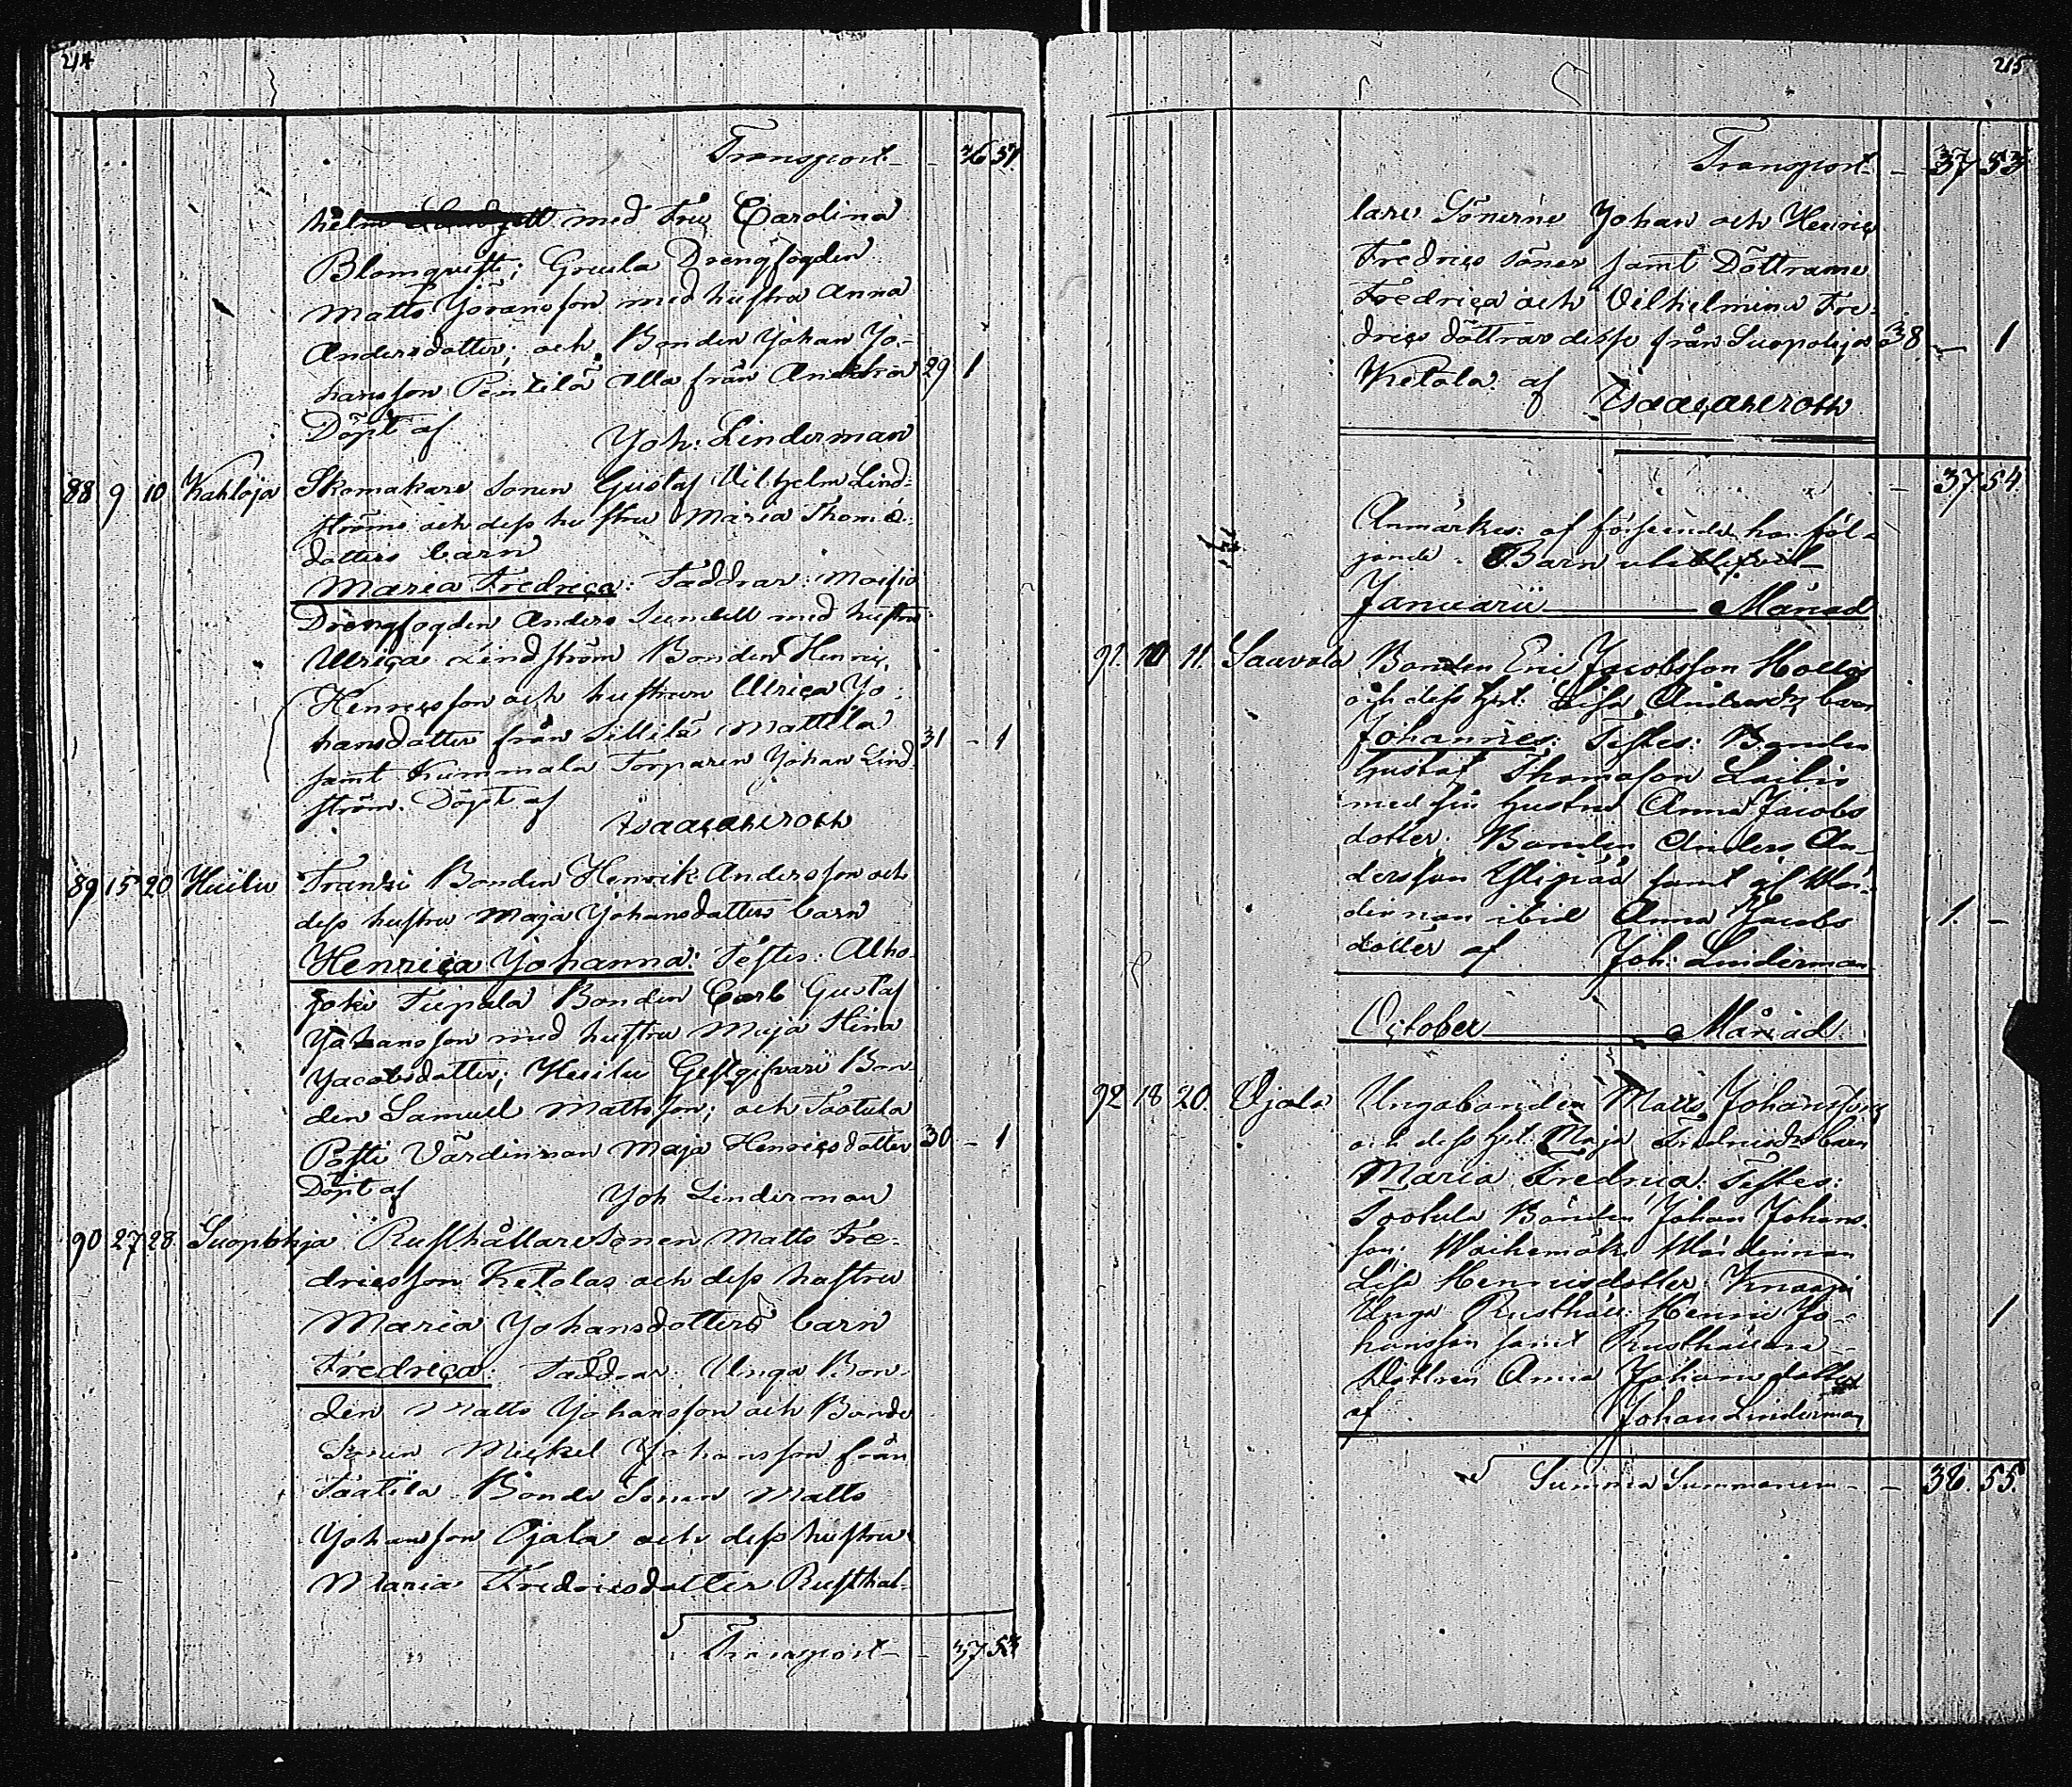 214
Transport - 36 51
med Fru Carolina
Blomqvist; Greula Drengfogden
Matts Jöransson med hustru Anna
Andersdotter; och Bonden Johan Jo-
hansson Pentilä alla från 29 1
Döpt af Joh: Linderman
88 9 10 Kahloja Skomakare Sonen Gustaf Vilhelm Lind-
ströms och dess hustru Maria Thomæ
dotters barn
Maria Fredrica: Faddrar: Moisio
Drengfogden Anders Sundell med hustru
Ulrica Lindström Bonden Henric
Henricsson och hustrun Ulrica Jo-
hansdotter från Sillilä Mattila 31 - 1
samt Kummala Torparen Johan Lind-
ström. Döpt af
Isaac Ahlroth
89 15 20 Huilu Franzi Bonden Henrik Andersson och
dess hustru Maja Johansdotters barn
Henrica Johanna: Testes: Alho-
joki Tiepala Bonden Carl Gustaf
Johansson med hustru Maja Stina
Jacobsdotter; Huilu Gestgifvare Bon-
den Samuel Mattsson; och Tootula
Posti Värdinnan Maja Henricsdotter 30 - 1
Döpt af Joh Linderman
90 27 28 Suopohja Rusthållare Sonen Matts Fre-
dricsson Ketolas och dess hustru
Maria Johansdotters barn
Fredrica: Faddrar: Unga Bon-
den Matts Johansson och Bonde
Sonen Mickel Johansson från
Taatila Bonde Sonen Matts
Johansson Ojala och dess hustru
Maria Fredricsdotter Rusthål-
Transport - 37 53
215
Transport - 37 53
lare Sönerne Johan och Henric
Fredrics söner samt Döttrarne
Fredrica och Vilhelmina Fre-
drics döttrar desse från Suopohja 38 - 1
Ketola af Isaac Ahlroth
- 37 54
Anmärkes: af förseende ha föl-
jande Barn uteblifvit
Januarii Månad
91. 10 11. Sauvala Bonden Eric Jacobsson
och dess hst: Lisa Andersdr barn
Johannes: Testes: Bonden
Gustaf Thomasson Laitis
med sin hustru Anna Jacobs
dotter. Bonden Anders An-
dersson Ylipää samt Wär-
dinnan ibid Anna Jacobs 1. -
dotter af Joh: Linderman
October Månad
92 18 20. Ojala Ungabonden Matts Johanssons
och dess hst: Maja Fredricsdrs barn
Maria Fredrica: Testes:
Tootula Bonden Johan Johans-
son: Waihemäk Wärdinnan
Lisa Henricsdotter, Knaapi
Unga Rusthåll: Henric Jo- 1
hansson samt Rusthållare
Dottren Anna Johansdotter
af Johan Linderman
Summa Summarum - - 38. 55.